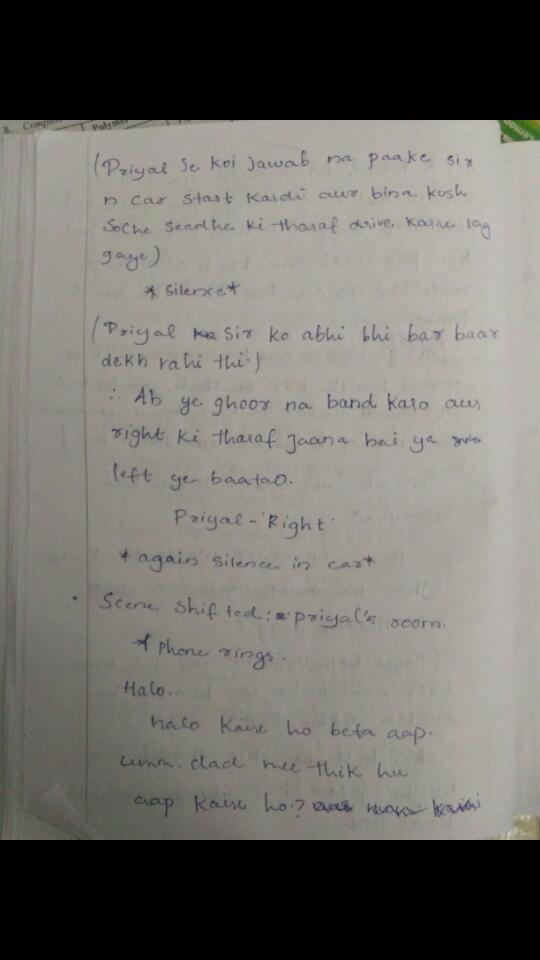 8. Comp
Polymer
Lemon
(Priyal se koi jawab na paake sir
n car start kardi aur bina kush
soche seedhe ki tharaf drive karne lag
gaye)
*silence*
(Priyal sir ko abhi bhi bar baar
dekh rahi thi.)
∴ Ab ye ghoor na band karo aur
right ki tharaf jaana hai ya
left ye baatao.
Priyal - Right
*again silence in car*
• Scene shifted: priyal's room.
*phone rings:
Halo..
halo kaise ho beta aap.
umm. dad mee thik hu
aap kaise ho.?